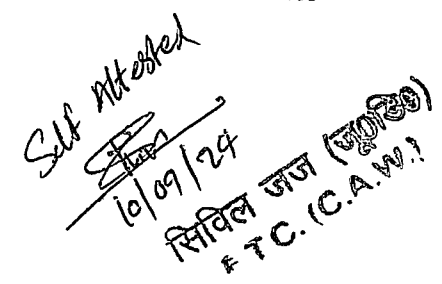 Self Attested
10/09/24
सिविल जज (जू०डि०)
F T C. (C.A.W.)